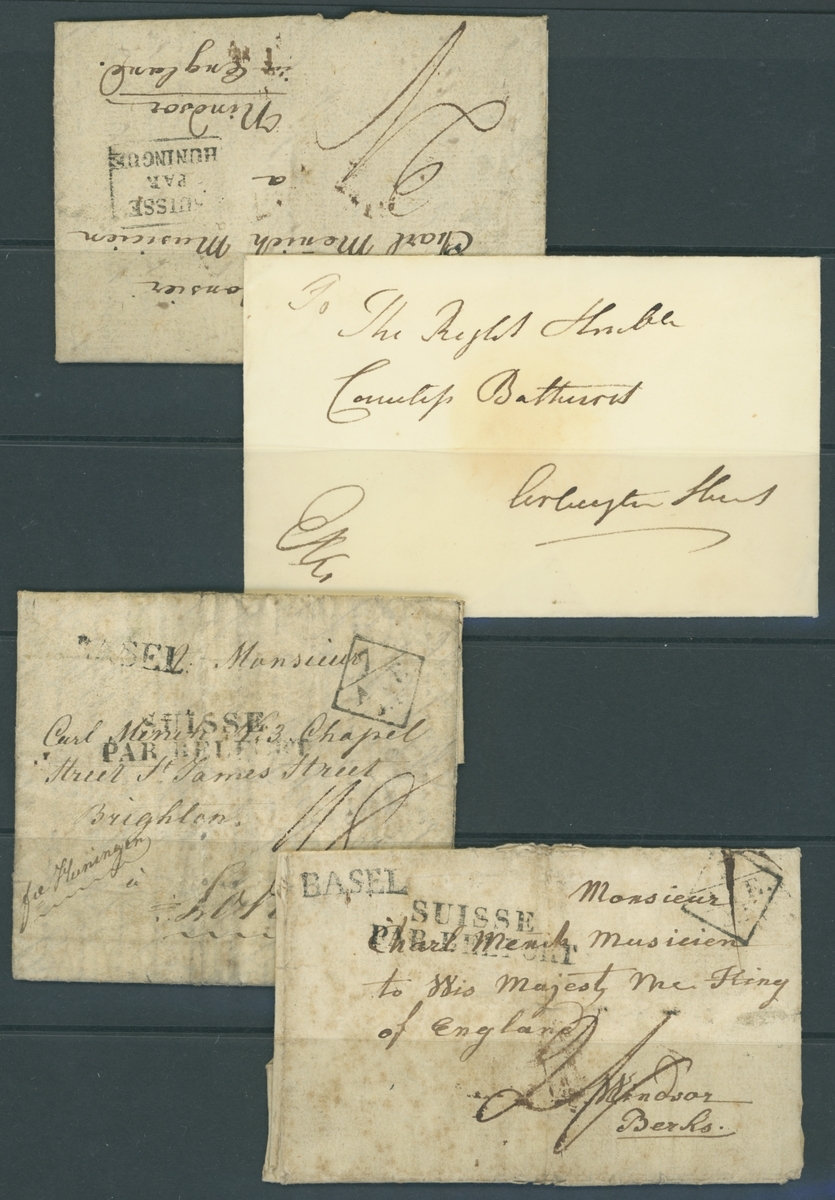 Monsier
Charl Menich Musicien
a
Windsor
in England.
SUISSE
PAR
HUNINGUE
To
The Right Honble
Countess Bathurst
Arlington Street
BASEL
Monsieur
SUISSE
PAR BELFORT
Carl Menich No 3 Chapel
Street St James Street
Brighton.
fco Huningen
a
BASEL
Monsieur
SUISSE
PAR BELFORT
Charl Menich Musicien
to His Majesty the King
of England
Windsor
Berks.